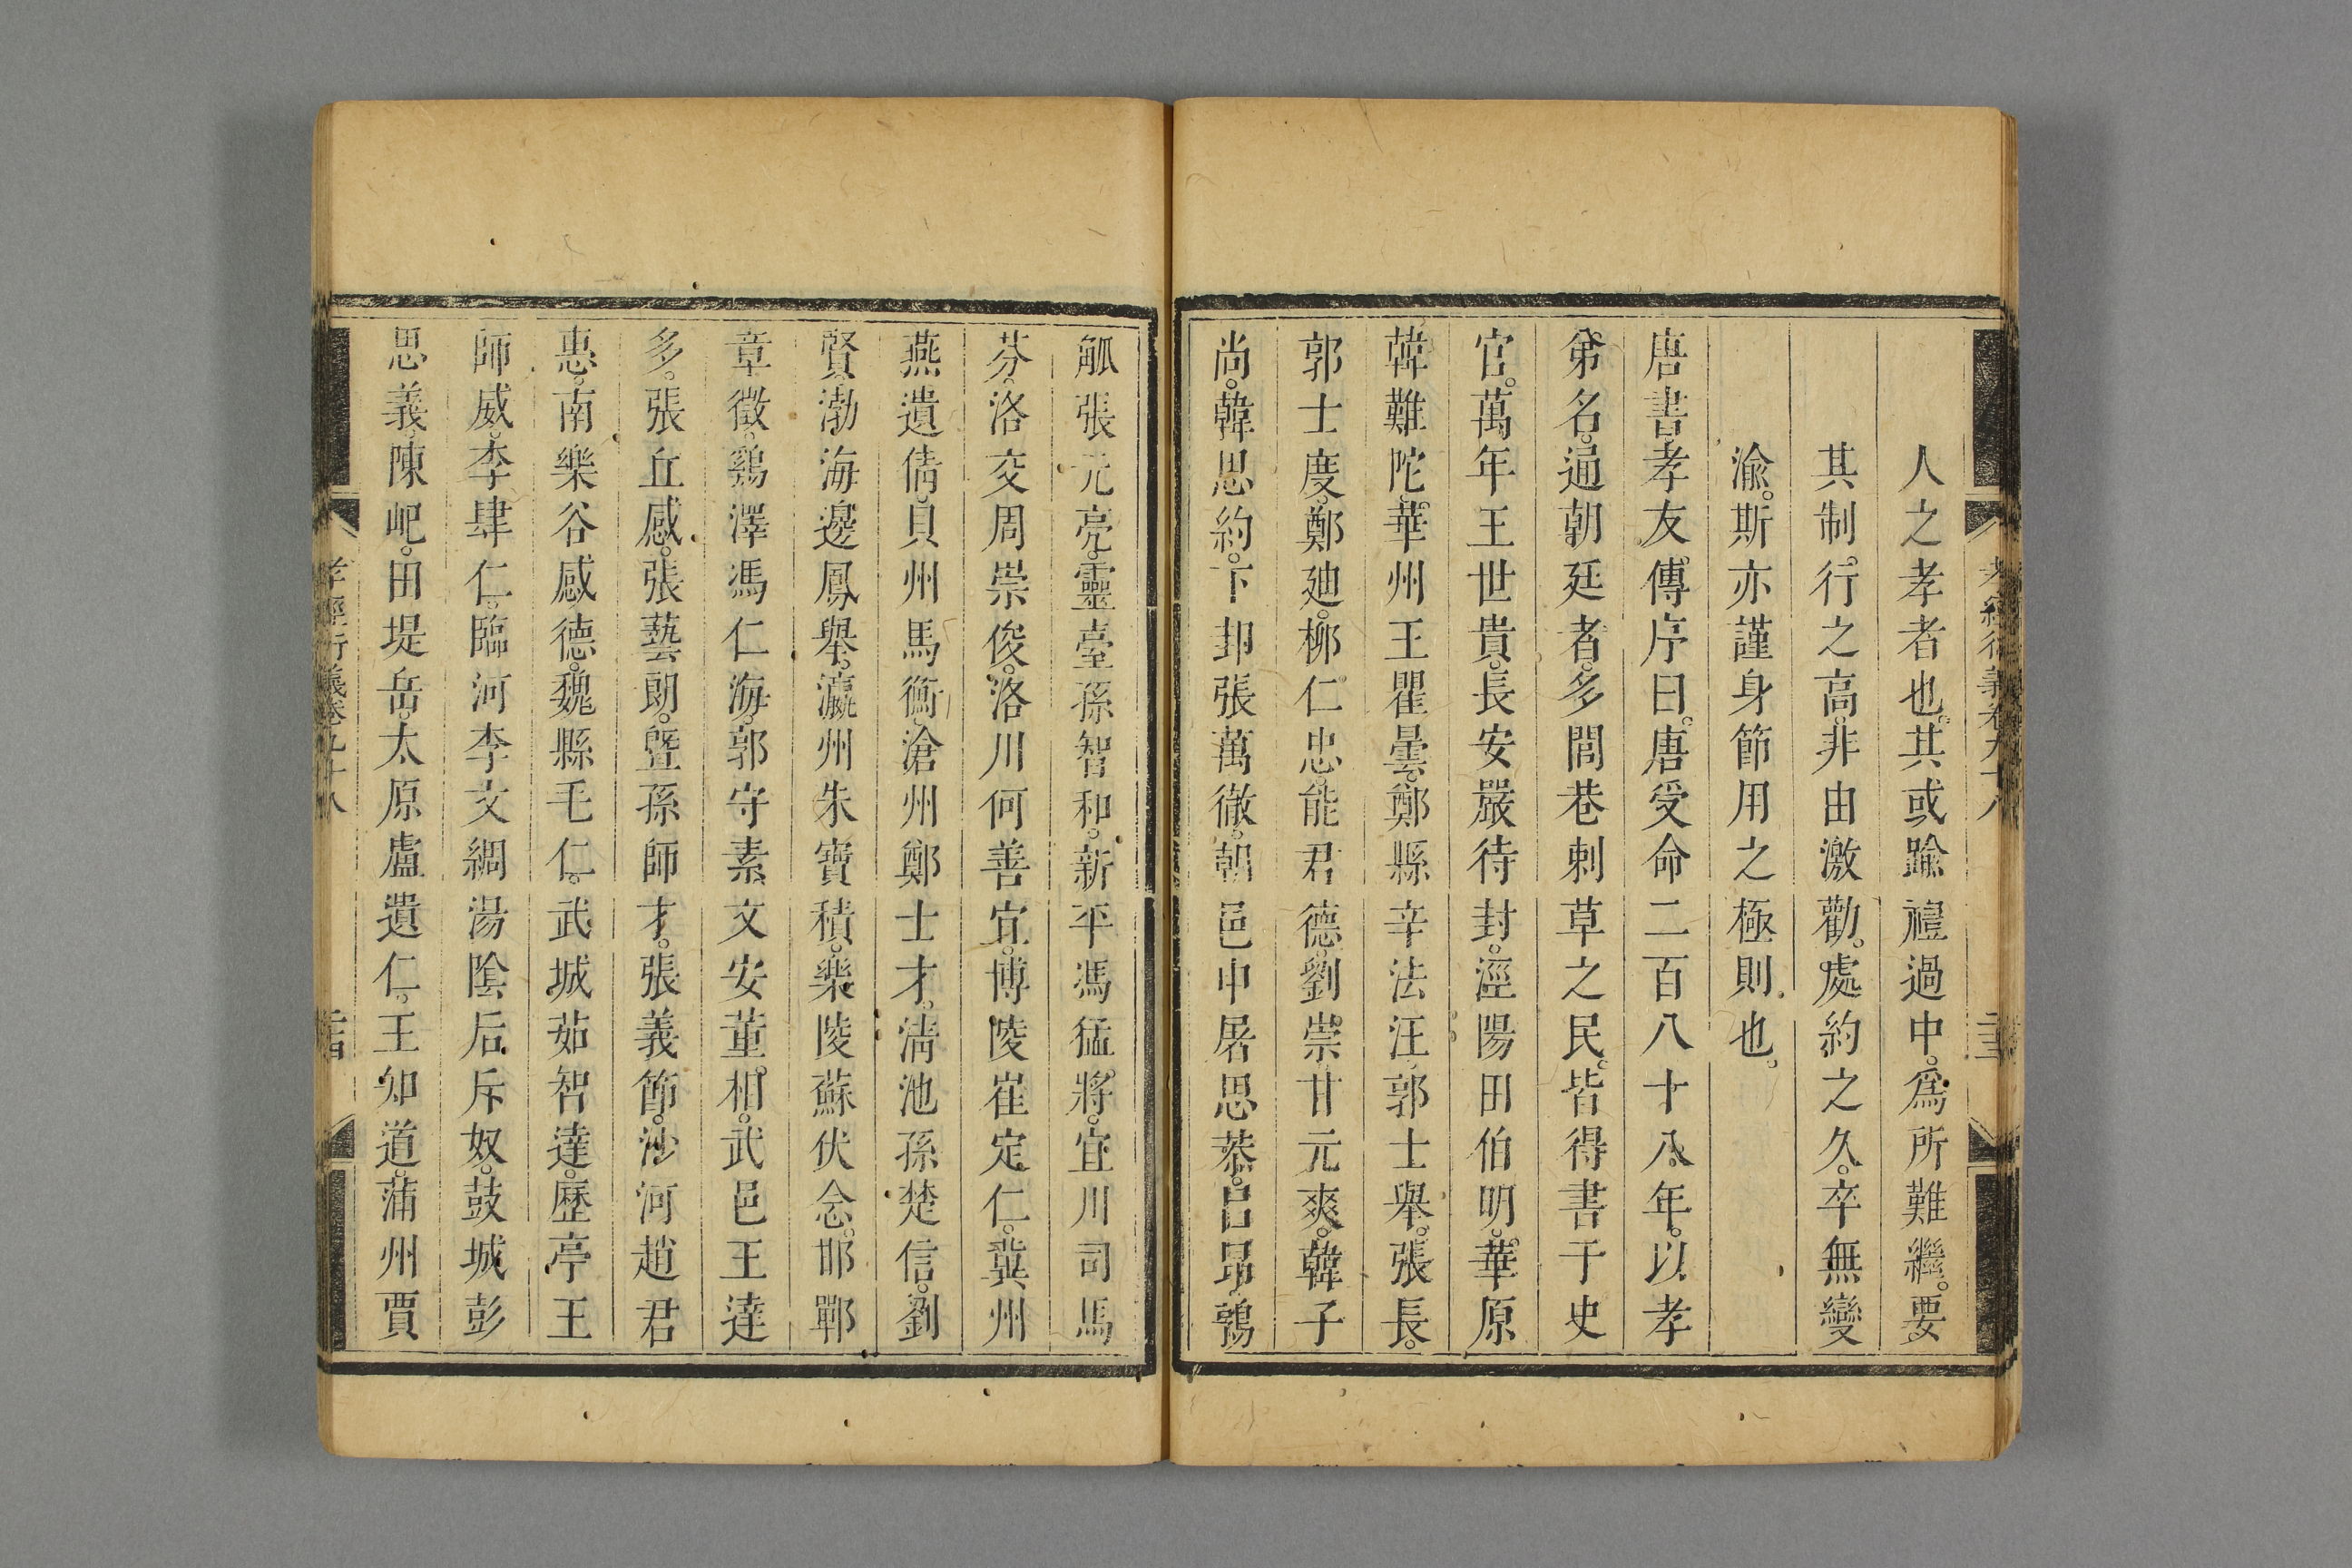 人之孝者也。其或踰禮過中。爲所難繼。要
其制。行之高。非由激勸。處約之久。卒無變
渝。斯亦謹身節用之極則也。
唐書孝友傳序曰。唐受命二百八十八年。以孝
弟名。通朝廷者。多閭巷刺草之民。皆得書于史
官。萬年王世貴。長安嚴待封。涇陽田伯明。華原
韓難陀。華州王瞿曇。鄭縣辛法汪。郭士舉。張長。
郭士度。鄭廸。柳仁忠。能君德。劉崇。甘元爽。韓子
尚。韓思約。下邽張萬徹。朝邑申屠思恭。呂昂。鶉
觚張元亮。靈臺孫智和。新平馮猛將。宜川司馬
芬。洛交周崇俊。洛川何善宜。博陵崔定仁。冀州
燕遺倩。貝州馬衡。滄州鄭士才。清池孫楚信。劉
賢。渤海邊鳳舉。瀛州朱寶積。樂陵蘇伏念。邯鄲
章徵。鷄澤馮仁海。郭守素。文安董相。武邑王達
多。張丘感。張藝朗。曁孫師才。張義節。沙河趙君
惠。南樂谷感德。魏縣毛仁。武城茹智達。歷亭王
師威。李肆仁。臨河李文綢。湯陰后斥奴。鼓城彭
思義。陳屺。田堤岳。太原盧遺仁。王知道。蒲州賈
孝經衍義卷九十八